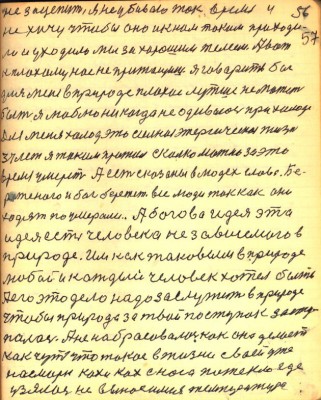 56
57
не зацепит, я не убиваю ток время и
не хочу чтобы оно к нам таким приходи-
ло и уходило мы за хорошим телеси. А вот
к плохому нас не притащишь. Я говорить бы
для меня в природе плохое лучше не может
быть я люблю никогда не одиваюсь при холоде
для меня холод это сильная энергическая
лет я таким против сколко можно за это
время умереть А есть сказаны в людех слова. Бе-
режоного и бог бережет все люди так как они
ходят поумерали. А богова идея это
идея есть человека не зависимого в
природе. Им как таковым в природе
любой и каждый человек хотел быть
А его это дело надо заслужить в природе
чтобы природа за твой поступок засту-
палась А не набрасовалась как она делает
как чуть что такое в жизни своей уже
насморк кахи ках с носа потекло где
взялась не выносимая температура